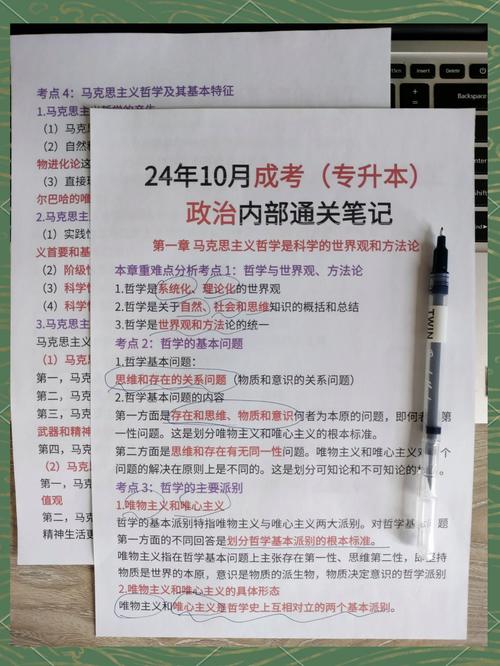 考点4：马克思主义哲学及其基本特征
1.马克思主义哲学的产生
（1）马克
（2）自然
物进化论这
（3）直接
尔巴哈的唯
2.马克思主
（1）实践性
义首要和基
（2）阶级性
（3）科学性
（4）科学性
3.马克思主义
马克思主义
（1）马克思
第一，马克
第二，马克
第三，马克
武器和精神
第四，马克
（2）马克思
第一，马克
值观
第二，马克
精神生活更
24年10月成考（专升本）
政治内部通关笔记
第一章 马克思主义哲学是科学的世界观和方法论
本章重难点分析考点1：哲学与世界观、方法论
1.哲学是系统化、理论化的世界观
2.哲学是关于自然、社会和思维知识的概括和总结
3.哲学是世界观和方法论的统一
考点2：哲学的基本问题
1.哲学基本问题：
思维和存在的关系问题（物质和意识的关系问题）
2.哲学基本问题的内容
第一方面是存在和思维、物质和意识何者为本原的问题，即何者第
一性问题。这是划分唯物主义和唯心主义的根本标准。
第二方面是思维和存在有无同一性问题。唯物主义和唯心主义对 个
问题的解决在原则上是不同的。这是划分可知论和不可知论的
考点3：哲学的主要派别
1.唯物主义和唯心主义
哲学的基本派别特指唯物主义与唯心主义两大派别。对哲学基 问题
第一方面的不同回答是划分哲学基本派别的根本标准。
唯物主义指在哲学基本问题上主张存在第一性、思维第二性，即坚持
物质是世界的本原，意识是物质的派生物，物质决定意识的哲学派别
2.唯物主义和唯心主义的具体形态
唯物主义和唯心主义是哲学史上互相对立的两个基本派别。
TWIN
Insert
Delete
Backspace